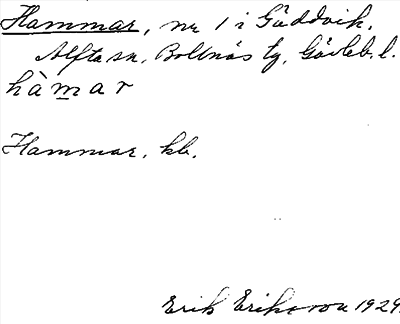 Hammar, nr 1 i Gäddvik,
Alfta sn, Bollnäs tg, Gävleb. l.
hàmar
Hammar, kb.
Erik Eriksson 1929.